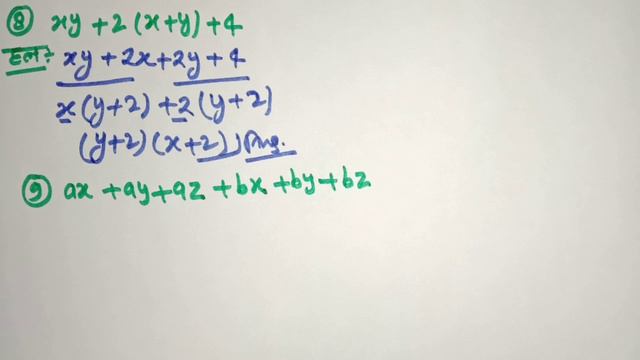 ⑧ xy + 2 (x+y) + 4
हल :- xy + 2x + 2y + 4
x (y+2) + 2 (y+2)
(y+2) (x+2) Ans.
⑨ ax + ay + az + bx + by + bz